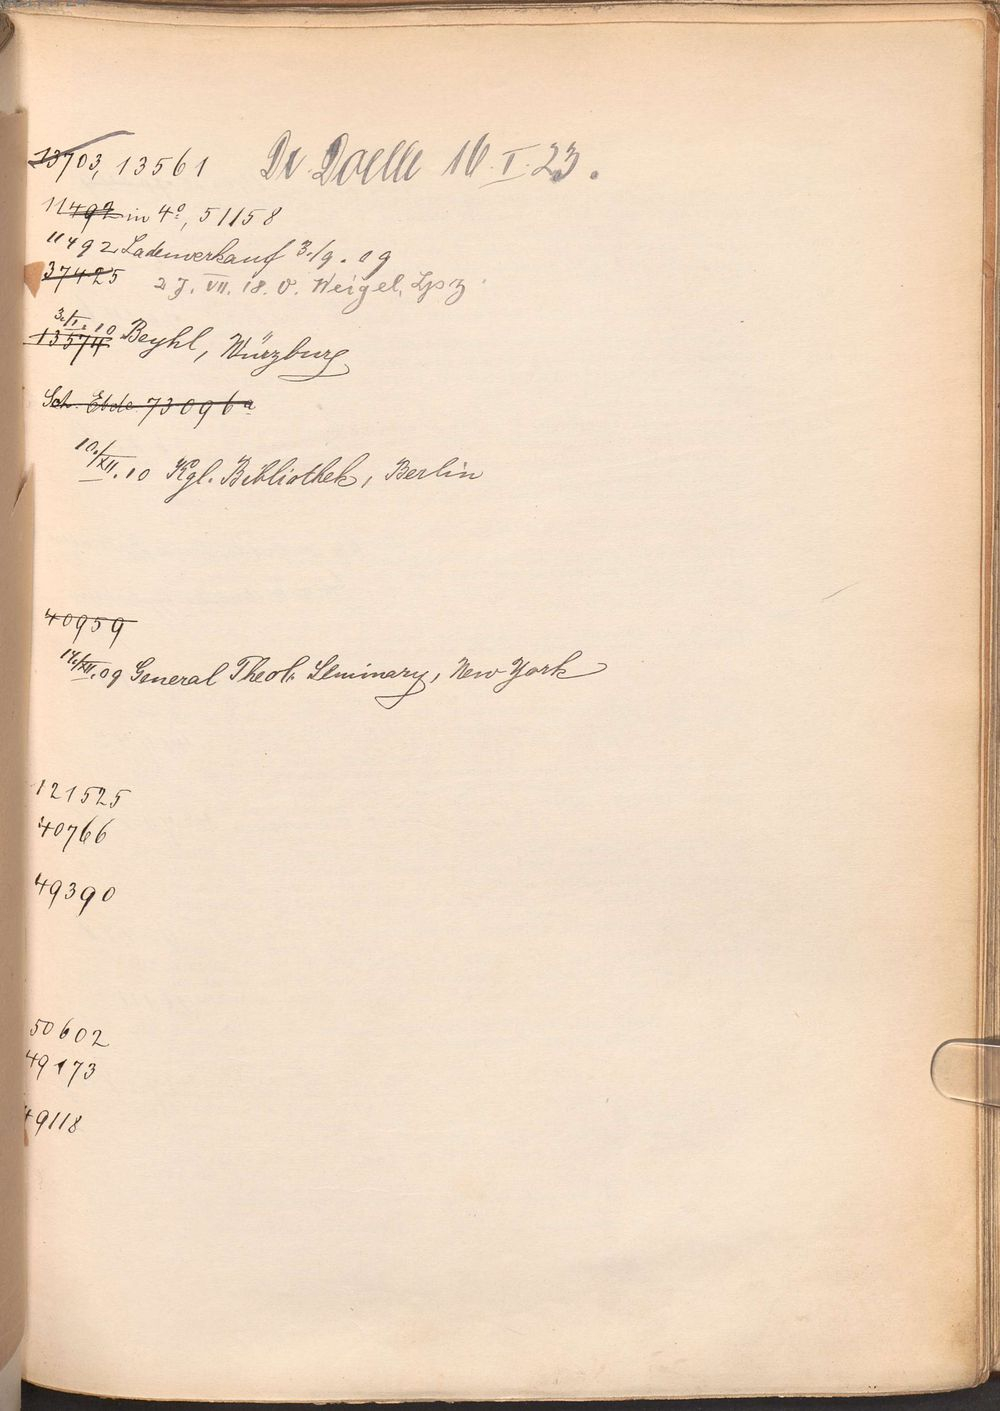 13703, 13561 Dr Doelle 16. I. 23.
11492 in 4º, 51158
11492 Ladenverkauf 3./9. 09
37425 27. VII. 18. O. Weigel, Lpzg
3./I. 10 Beyhl, Würzburg
13574
Sch. Ebde 73096a
10./XII. 10 Kgl. Bibliothek, Berlin
40959
14./XII. 09 General Theol. Seminary, New York
121525
40766
49390
50602
49173
49118